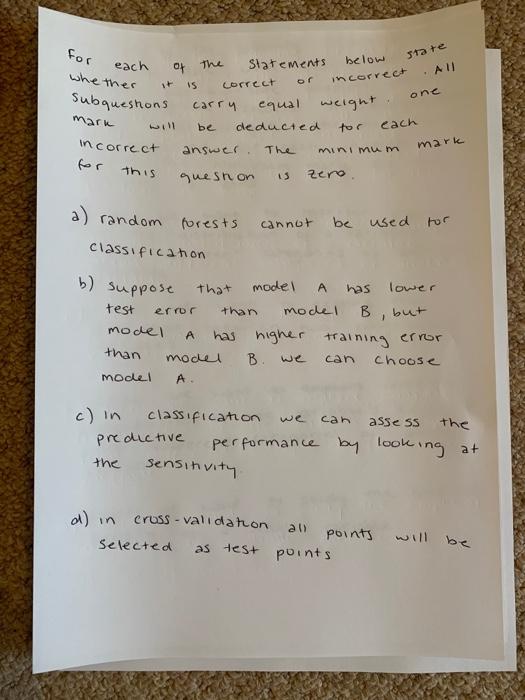 For each of the Statements below state
whether it is correct or incorrect. All
Subquestions carry equal weight. one
mark will be deducted for each
incorrect answer. The minimum mark
for this question is zero.
a) random forests cannot be used for
classification
b) suppose that model A has lower
test error than model B, but
model A has higher training error
than model B. we can choose
model A.
c) in classification we can assess the
predictive performance by looking at
the sensitivity
d) in cross-validation all points will be
selected as test points